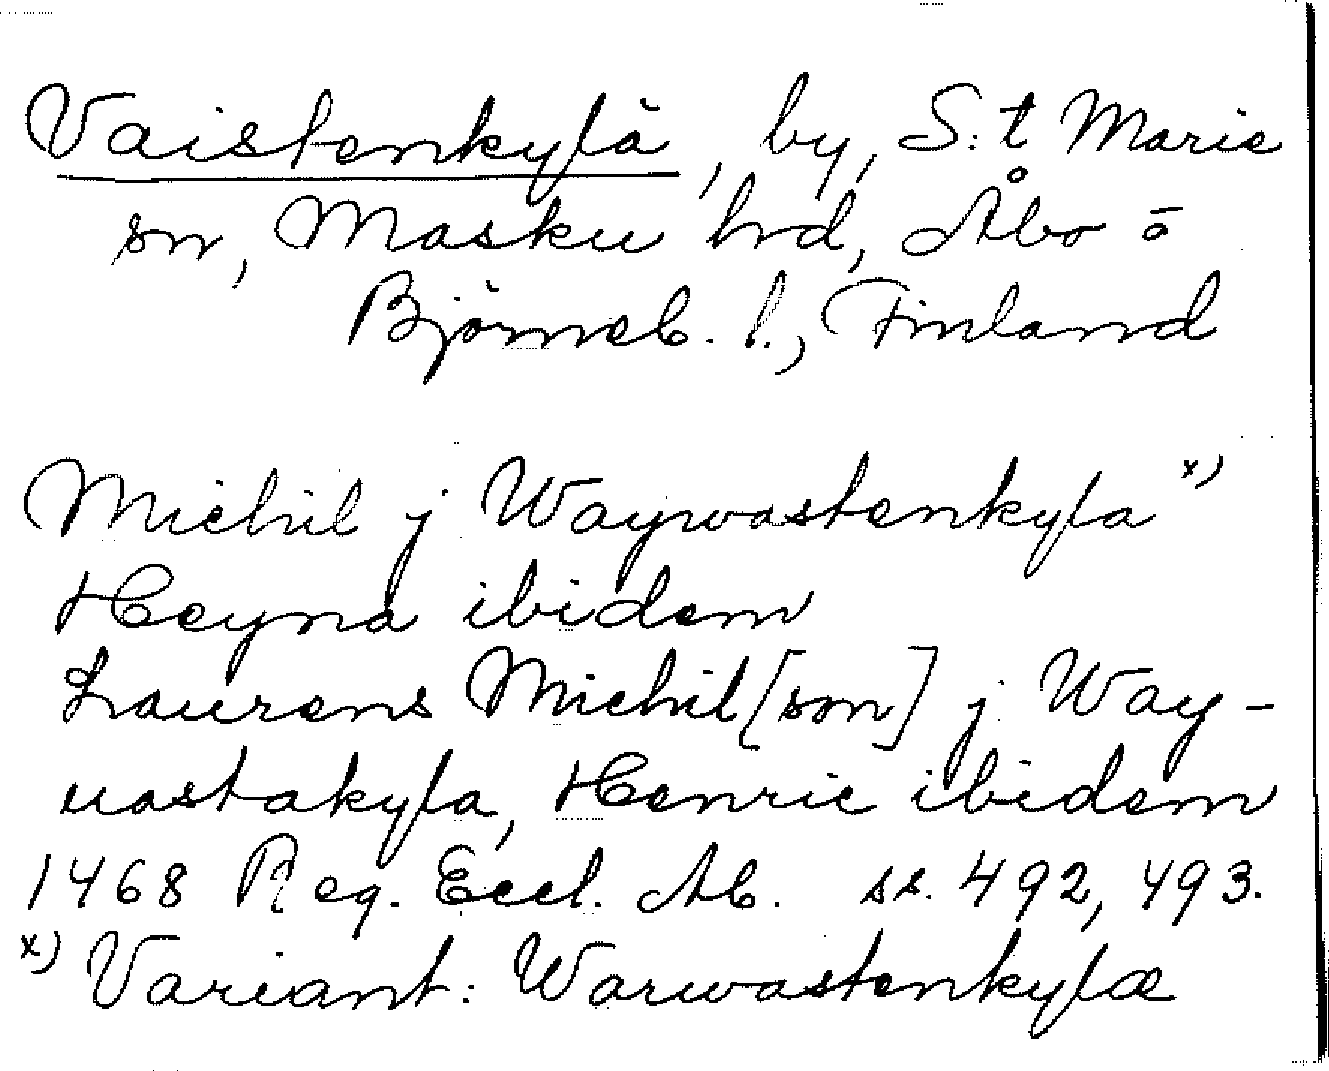 Vaistenkylä, by, S:t Marie
sn, Masku hrd, Åbo o
Björneb. l., Finland
Michil j Waywastenkyla x)
Heyna ibidem
Laurens Michil[son] j Way-
uastakyla, Henric ibidem
1468 Reg. Eccl. Ab. ss. 492, 493.
x) Variant: Warwastenkylæ